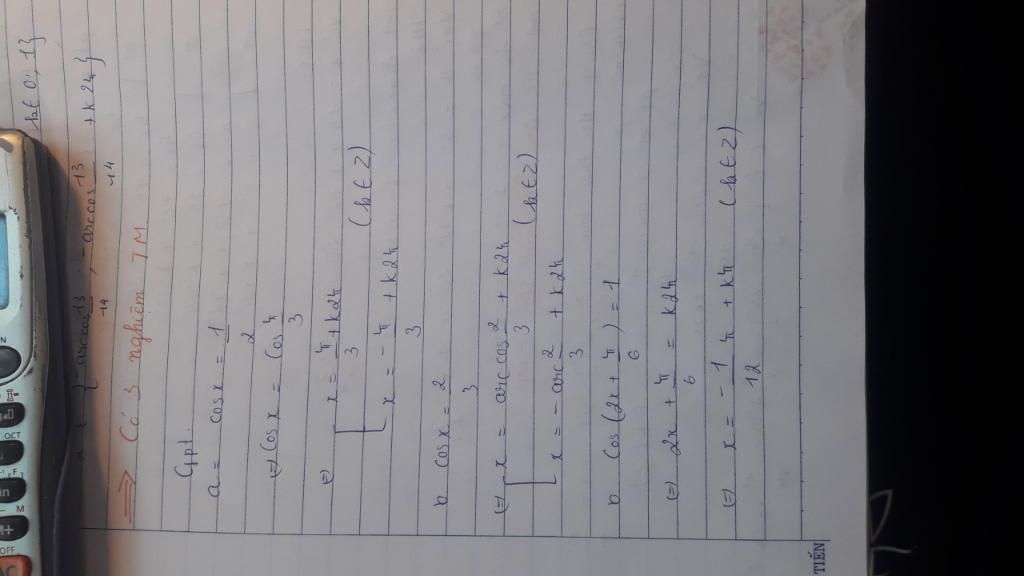 { arccos 13/-14 ; -arccos 13/-14 + k2π } k ∈ 0; 1}
⟹ Có 3 nghiệm TM
Gpt
a = cosx = 1/2
⇔ cos x = cos π/3
⇔ [ x = π/3 + k2π
x = -π/3 + k2π (k ∈ Z)
b cosx = 2/3
⇔ [ x = arc cos 2/3 + k2π
x = -arc 2/3 + k2π (k ∈ Z)
b cos (2x + π/6) = 1
⇔ 2x + π/6 = k2π
⇔ x = -1/12 π + kπ (k ∈ Z)
TIẾN
OCT
M
M+
OFF
AC